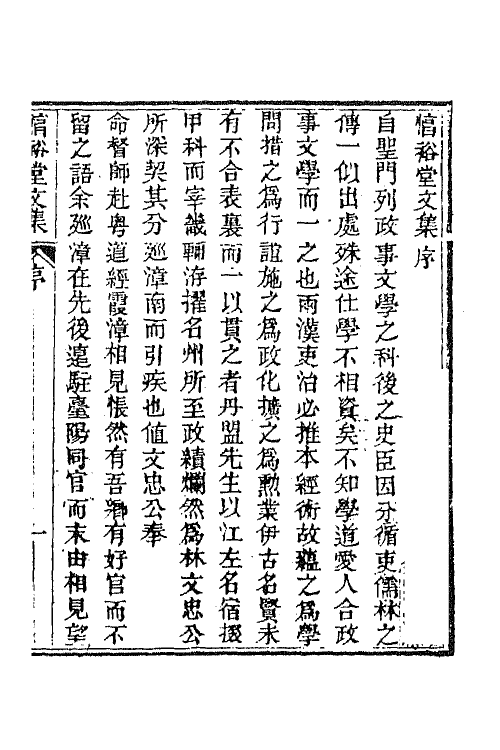 惰裕堂文集序
自聖門列政事文學之科後之史臣因分循吏儒林之
傳一似出處殊途仕學不相資矣不知學道愛人合政
事文學而一之也兩漢吏治必推本經術故蘊之為學
問措之為行誼施之為政化擴之為勳業伊古名賢未
有不合表裏而一以貫之者丹盟先生以江左名宿掇
甲科而宰畿輔洊擢名州所至政績爛然為林文忠公
所深契其分廵漳南而引疾也值文忠公奉
命督師赴粤道經霞漳相見悵然有吾鄉有好官而不
留之語余廵漳在先後遠駐臺陽同官而未由相見望
裕堂文集
序
一